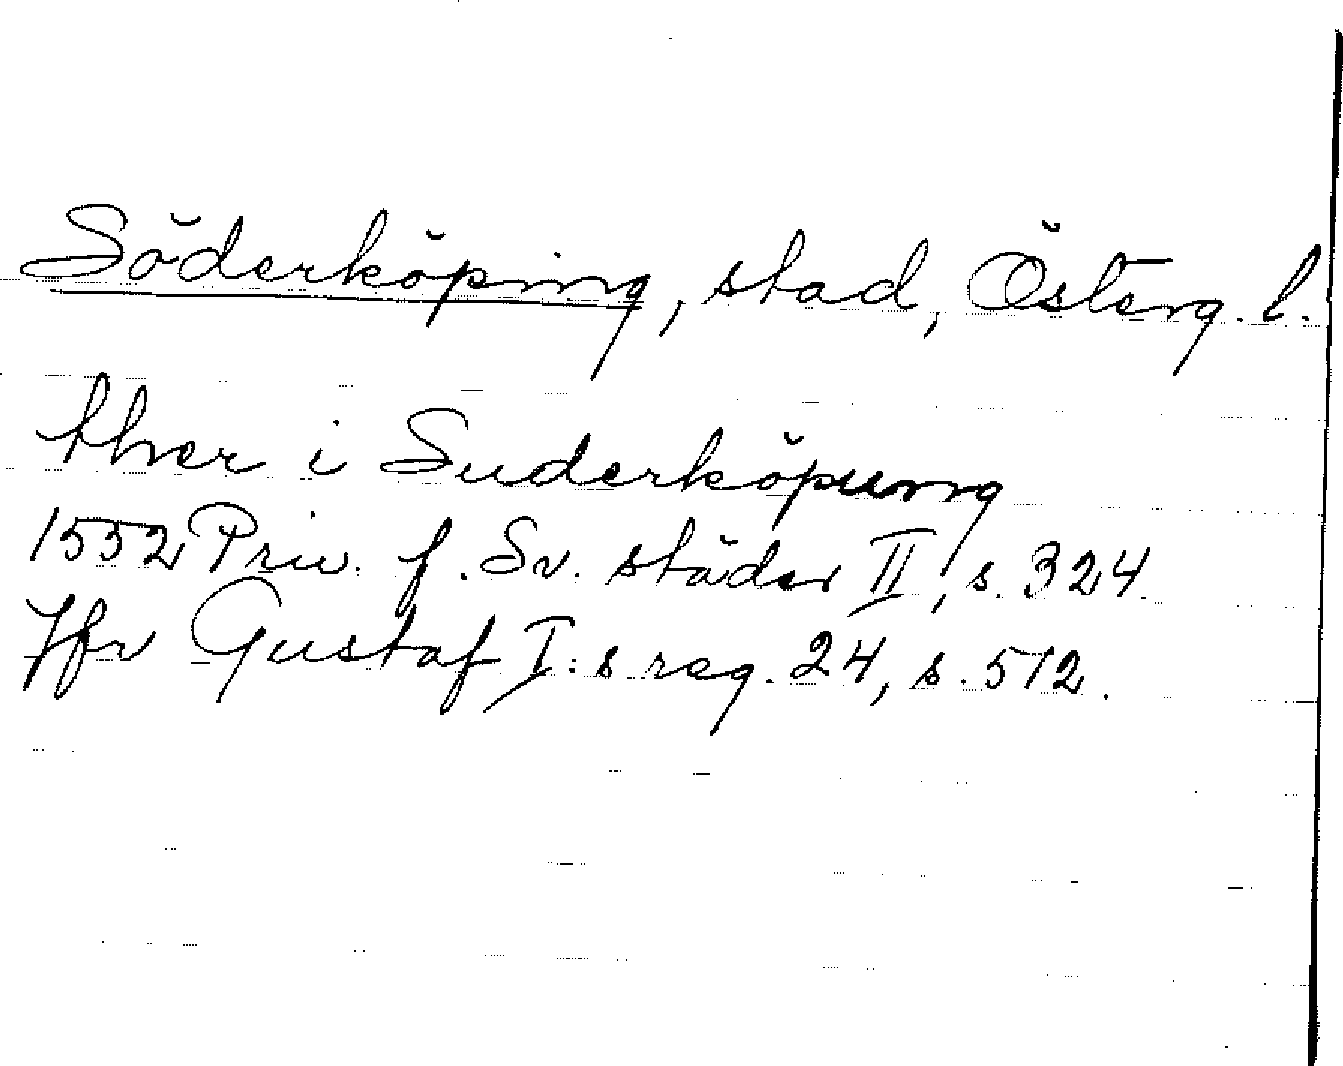 Söderköping, stad, Österg. l.
ther i Suderköpung
1552 Priv. f. Sv. städer II, s. 324.
Jfr Gustaf I:s reg. 24, s. 512.